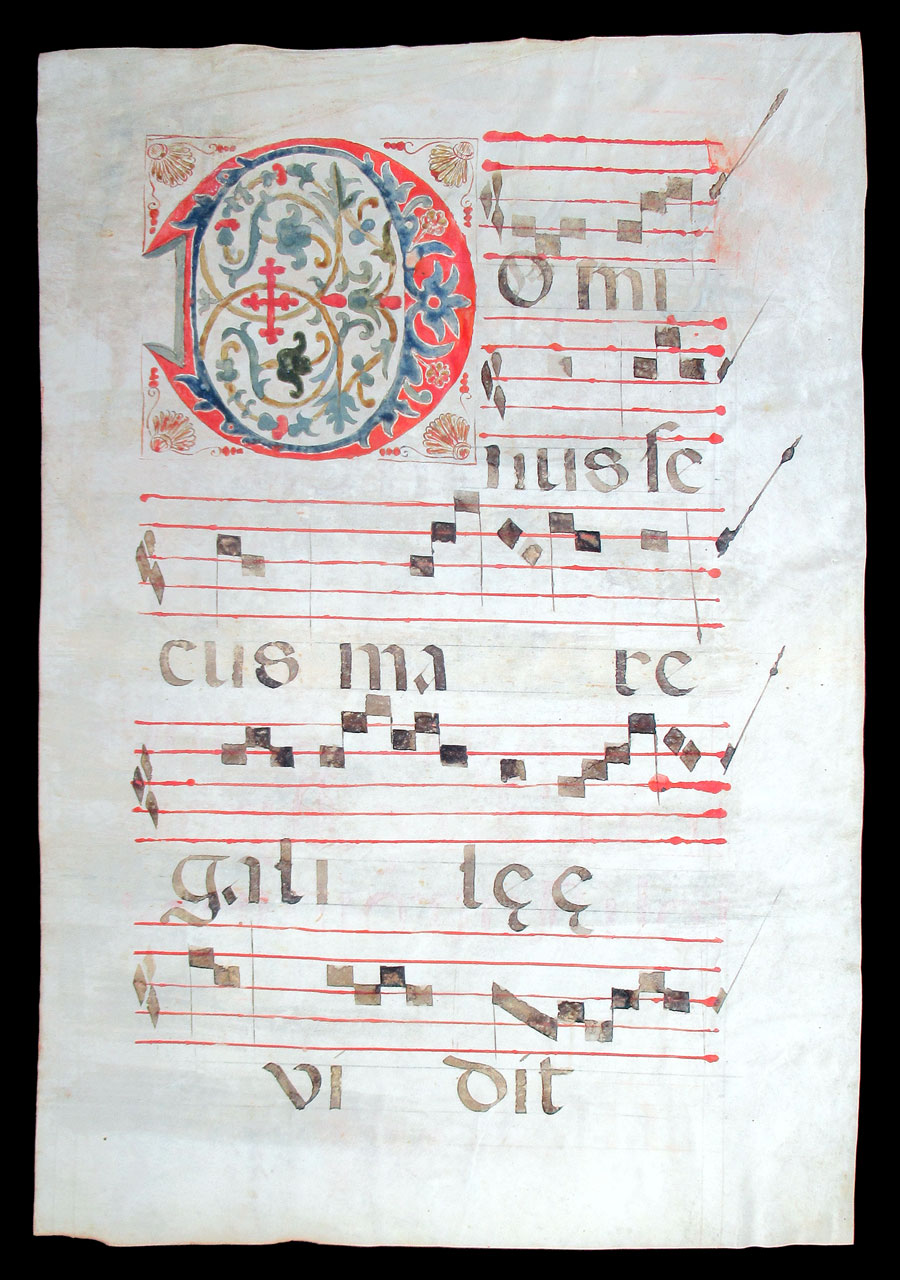 Domi
nus se
cus ma re
gali lęę
vi dit